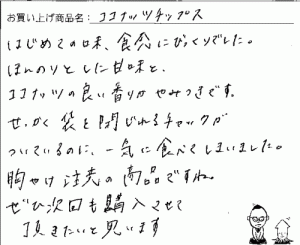 お買い上げ商品名：ココナッツチップス
はじめての味、食念にびっくりでした。
ほんのりとした甘味と、
ココナッツの良い香りがやみつきです。
せっかく袋を閉じれるチャックが
ついているのに、一気に食べてしまいました。
胸やけ注意の商品ですね。
ぜひ次回も購入させて
頂きたいと思います